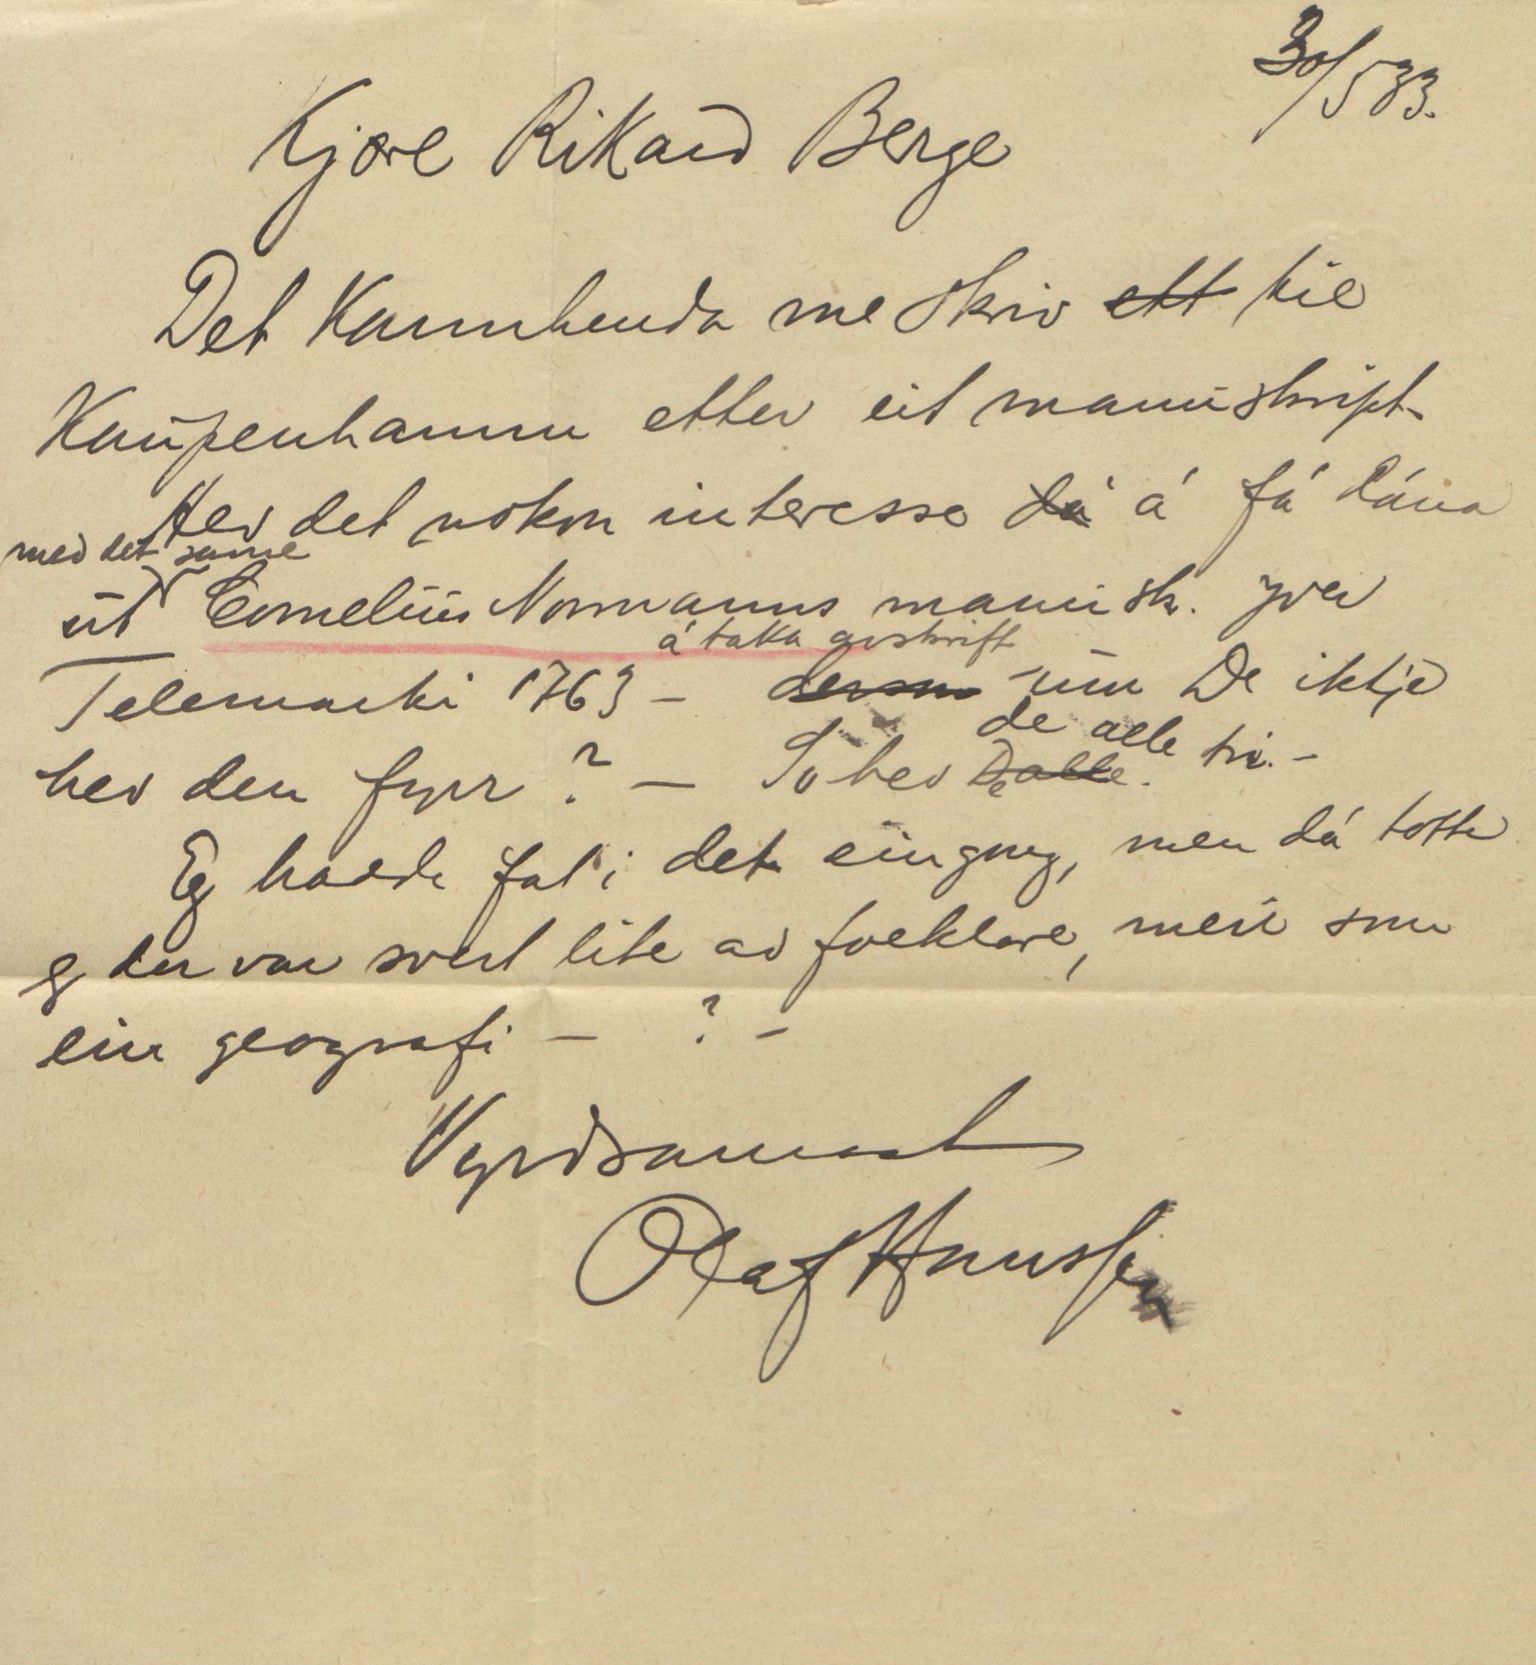 30/5 33.
Kjære Rikard Berge
Det kannhenda me skriv ett til
Kaupenhamn etter eit manuskript.
Hev det nokon interesse då å få låna
med det same
ut Cornelius Normanns manuskr. yver
å taka avskrift
Telemarki 1763 – dersom um De ikkje
de alle tri. –
hev den fyrr? – So hev De alle.
Eg hadde fat i det eingong, men då totte
eg der var svert lite av folklore, meir som
ein geografi – ? –
Vyrdsamast
Olaf